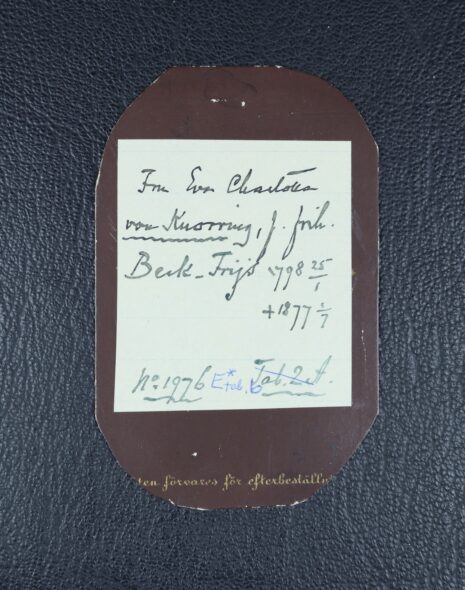 Fru Eva Charlotta
von Knorring, f. frih.
Beck-Friis 1798 25/1
+1877 1/7
No 1976 E* tab. 6 Tab. 2 A.
ten förvares för efterbeställn